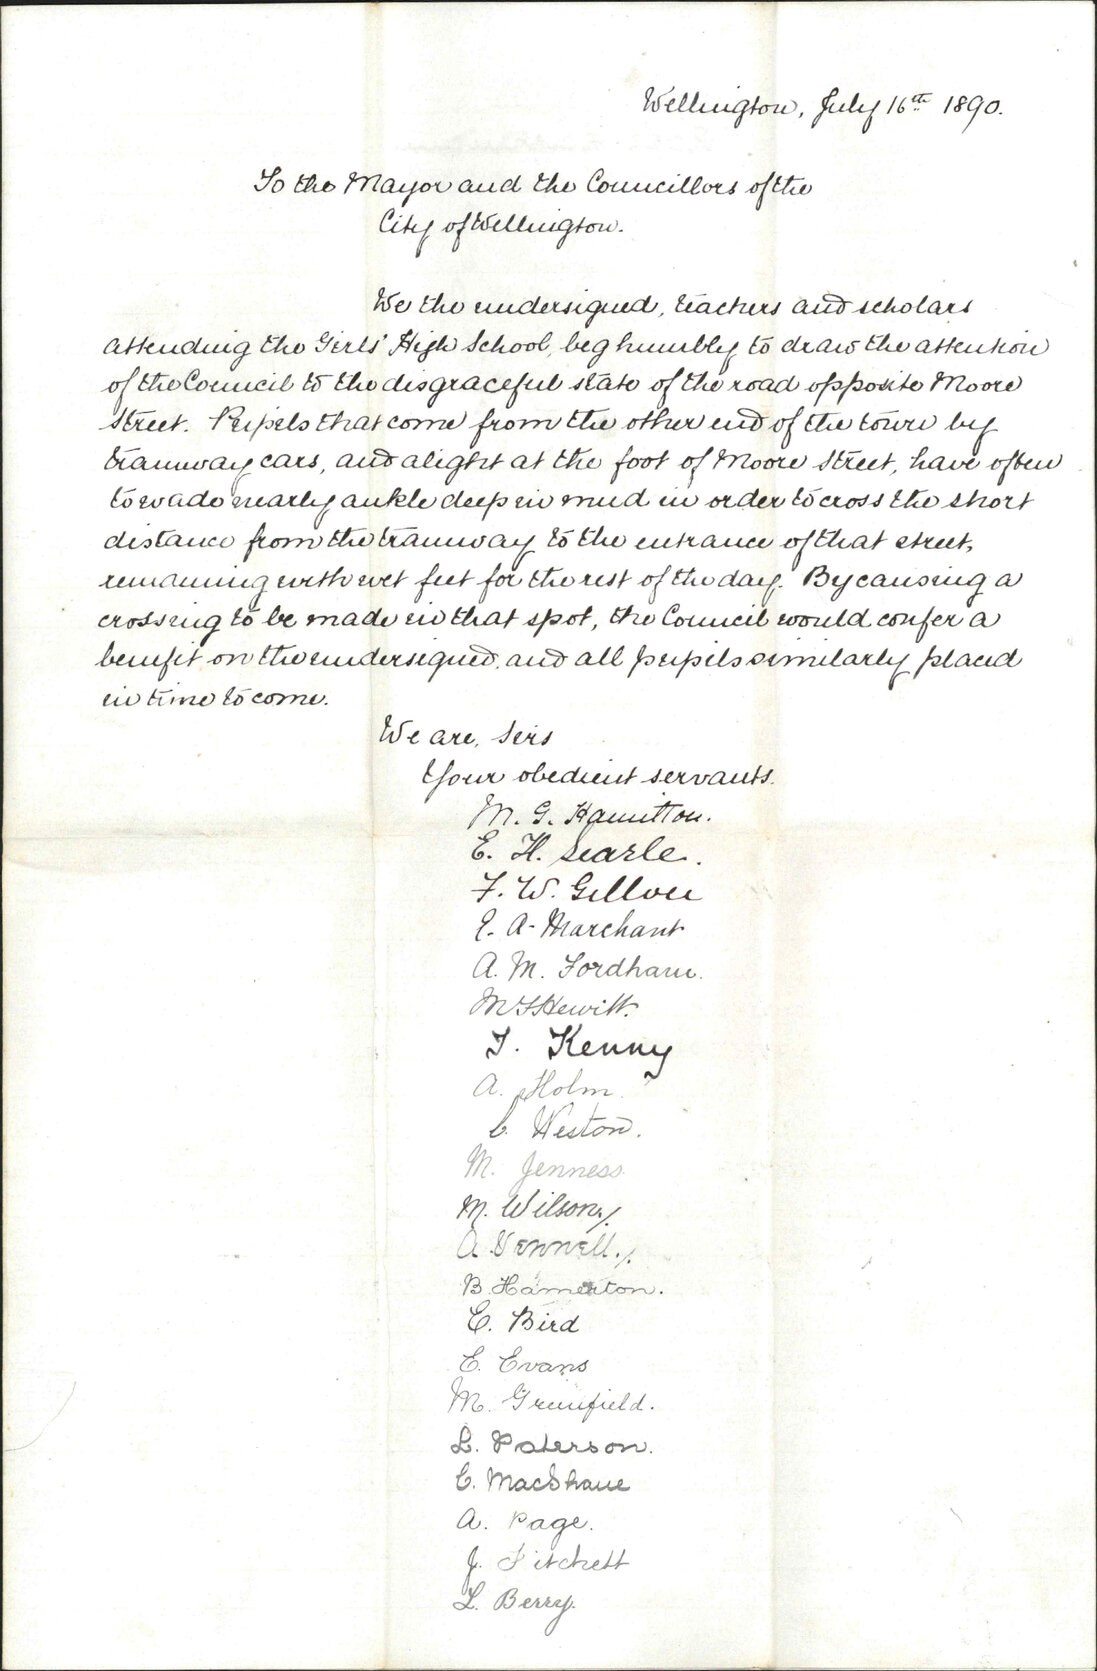 Wellington, July 16th 1890.
To the Mayor and the Councillors of the
City of Wellington.
We the undersigned, teachers and scholars
attending the Girls' High School, beg humbly to draw the attention
of the Council to the disgraceful state of the road opposite Moore
Street. Pupils that come from the other end of the town by
tramway cars, and alight at the foot of Moore Street, have often
to wade nearly ankle deep in mud in order to cross the short
distance from the tramway to the entrance of that street,
remaining with wet feet for the rest of the day. By causing a
crossing to be made in that spot, the Council would confer a
benefit on the undersigned, and all pupils similarly placed
in time to come.
We are, Sirs
Your obedient servants.
M. G. Hamilton.
E. H. Searle.
F. W. Gillon
E. A. Marchant
A. M. Fordham.
M Hewitt.
T. Kenny
A. Holm
C. Weston.
M. Jenness
M. Wilson.
A. Vennell.
B. Hamerton.
E. Bird
E. Evans
M. Greenfield.
L. Paterson.
C. MacShane
A. Page.
J. Fitchett
L. Berry.